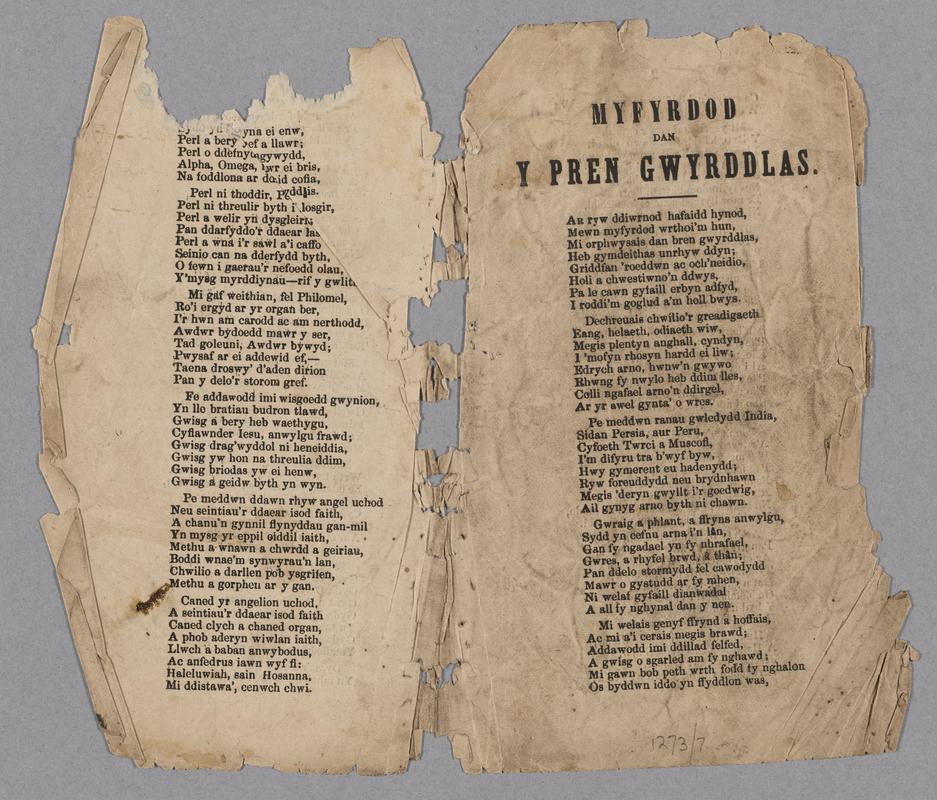 yna ei enw,
Perl a bery
Perl o
Alpha, Omega, ei bris,
Na foddlona ar cofia,
Perl ni thoddir,
Perl ni threulir byth i losgir,
Perl a welir yn
Pan ddarfyddo'r ddaear las
Perl a wna i'r sawl a'i caffo
Seinio can na dderfydd byth,
O fewn i gaerau'r nefoedd olau,
Y'mysg myrddiynau—rif y
Mi gâf weithian, fel Philomel,
Ro'i ergyd ar yr organ ber,
I'r hwn am carodd ac am nerthodd,
Awdwr bydoedd mawr y ser,
Tad goleuni, Awdwr bywyd;
Pwysaf ar ei addewid ef,—
Taena droswy' d'aden dirion
Pan y delo'r storom gref.
Fe addawodd imi wisgoedd gwynion,
Yn lle bratiau budron tlawd,
Gwisg a bery heb waethygu,
Cyfiawnder Iesu, anwylgu frawd;
Gwisg drag'wyddol ni heneiddia,
Gwisg yw hon na threulia ddim,
Gwisg briodas yw ei henw,
Gwisg a geidw byth yn wyn.
Pe meddwn ddawn rhyw angel uchod
Neu seintiau'r ddaear isod faith,
A chanu'n gynnil flynyddau gan-mil
Yn mysg yr eppil eiddil iaith,
Methu a wnawn a chwrdd a geiriau,
Boddi wnae'm synwyrau'n lan,
Chwilio a darllen pob ysgrifen,
Methu a gorphen ar y gan.
Caned yr angelion uchod,
A seintiau'r ddaear isod faith
Caned clych a chaned organ,
A phob aderyn wiwlan iaith,
Llwch a baban anwybodus,
Ac anfedrus iawn wyf fi:
Haleluwiah, sain Hosanna,
Mi ddistawa', cenwch chwi.
MYFYRDOD
DAN
Y PREN GWYRDDLAS.
Ar ryw ddiwrnod hafaidd hynod,
Mewn myfyrdod wrthoi'm hun,
Mi orphwysais dan bren gwyrddlas,
Heb gymdeithas unrhyw ddyn;
Griddfan 'roeddwn ac och'neidio,
Holi a chwestiwno'n ddwys,
Pa le cawn gyfaill erbyn adfyd,
I roddi'm goglud a'm holl bwys.
Dechreuais chwilio'r greadigaeth
Eang, helaeth, odiaeth wiw,
Megis plentyn anghall, cyndyn,
I 'mofyn rhosyn hardd ei liw;
Edrych arno, hwnw'n gwywo
Rhwng fy nwylo heb ddim lles,
Colli ngafael arno'n ddirgel,
Ar yr awel gynta' o wres.
Pe meddwn ranau gwledydd India,
Sidan Persia, aur Peru,
Cyfoeth Twrci a Muscofi,
I'm difyru tra b'wyf byw,
Hwy gymerent eu hadenydd;
Ryw foreuddydd neu brydnhawn
Megis 'deryn gwyllt i'r goedwig,
Ail gynyg arno byth ni chawn.
Gwraig a phlant, a ffryns anwylgu,
Sydd yn cefnu arna i'n lân,
Gan fy ngadael yn fy nhrafael,
Gwres, a rhyfel brwd, â thân;
Pan ddelo stormydd fel cawodydd
Mawr o gystudd ar fy mhen,
Ni welaf gyfaill dianwadal
A all fy nghynal dan y nen.
Mi welais genyf ffrynd a hoffais,
Ac mi a'i cerais megis brawd;
Addawodd imi ddillad felfed,
A gwisg o sgarled am fy nghawd;
Mi gawn bob peth wrth fodd fy nghalon
Os byddwn iddo yn ffyddlon was,
1273/7